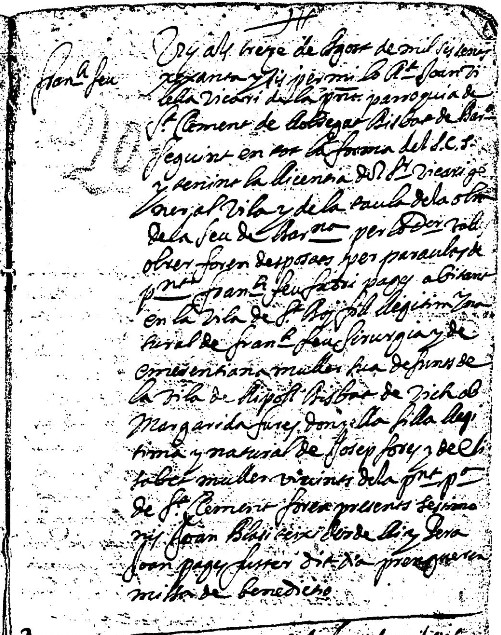 fran.ᵃ feu
Vuy als treze de Agost de mil sis cens
xexanta y sis per mi lo R.ᵗ Joan Vi
lella vicari de la pñt parroquia de
S.ᵗ Clement de Llobregat Bisbat de Barⁿᵃ
seguint en tot la forma del S.C.T.
y tenint la llicentia del S.ʳ Vicari ge
neral Vila y de la taula de la obra
de la Seu de Barⁿᵃ per lo D.ᵒʳ
obrer foren desposats per paraules de
pñt fran.ᶜʰ feu fadri pages abitant
en la vila de S.ᵗ Boy fill llegitim y na
tural de fran.ᶜʰ feu sirurgia y de
emerentiana muller sua defuncts de
la vila de Ripoll Bisbat de Vich ab
Margarida fores donzella filla llegi
tima y natural de Josep fores y de Eli
sabet muller vivints de la pñt p.ᵃ
de S.ᵗ Clement foren presents testimo
nis Joan Blasi texidor de lli y Pera
Joan pages fuster dit dia prengueren
missa de benedictio